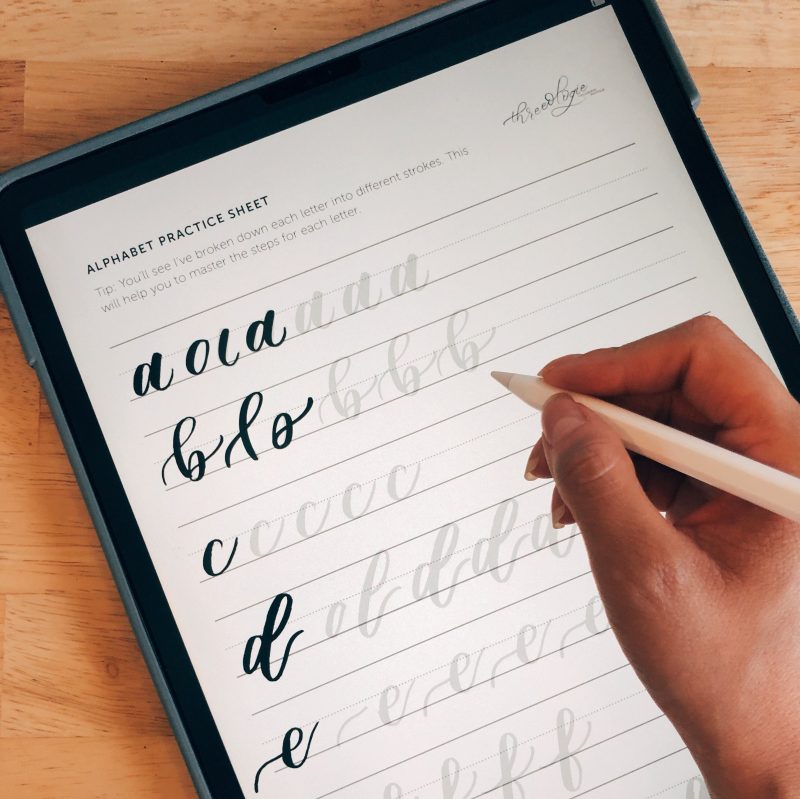 threeologie
ALPHABET PRACTICE SHEET
Tip: You'll see I've broken down each letter into different strokes. This
will help you to master the steps for each letter.
a o ı a a a a
b l o b b b
c c c c c
d o l d d d
e e e e e
f f